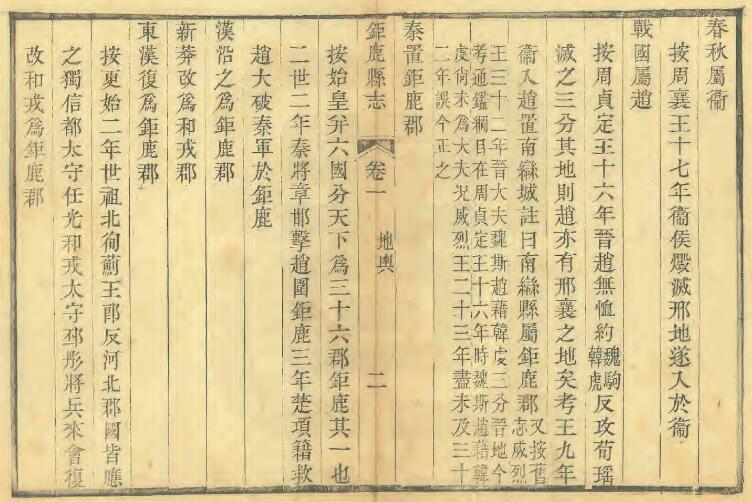 春秋屬衞
按周襄王十七年衞侯燬滅邢地遂入於衞
戰國屬趙
按周貞定王十六年晉趙無恤約魏駒韓虎反攻荀瑤
滅之三分其地則趙亦有邢襄之地矣考王九年
衞入趙置南䜌城註曰南䜌縣屬鉅鹿郡又按舊志威烈
王三十二年晉大夫魏斯趙藉韓虔三分晉地今
考通鑑綱目在周貞定王十六年時魏斯趙藉韓
虔尚未爲大夫况威烈王二十三年盡未及三十
二年誤今正之
秦置鉅鹿郡
鉅鹿縣志 卷一 地輿 二
按始皇并六國分天下爲三十六郡鉅鹿其一也
二世二年秦將章邯擊趙圍鉅鹿三年楚項籍救
趙大破秦軍於鉅鹿
漢沿之爲鉅鹿郡
新莽改爲和戎郡
東漢復爲鉅鹿郡
按更始二年世祖北徇薊王郎反河北郡國皆應
之獨信都太守任光和戎太守邳彤將兵來會復
改和戎爲鉅鹿郡